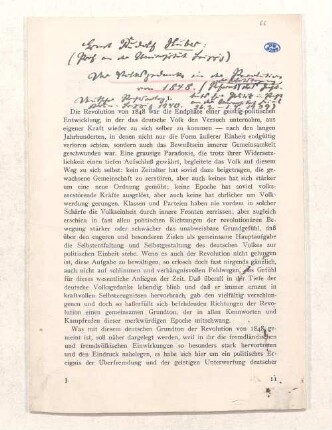 Ernst Rudolf Huber:
(Prof. an der Universität Leipzig)
Der Volksgedanke in der Revolution
von 1848.
Die Revolution von 1848 war die Endphase einer geistig-politischen
Entwicklung, in der das deutsche Volk den Versuch unternahm, aus
eigener Kraft wieder zu sich selber zu kommen — nach den langen
Jahrhunderten, in denen nicht nur die Form äußerer Einheit endgültig
verloren schien, sondern auch das Bewußtsein innerer Gemeinsamkeit
geschwunden war. Eine grausige Paradoxie, die trotz ihrer Widersetz-
lichkeit einen tiefen Aufschluß gewährt, begleitete das Volk auf diesem
Weg zu sich selbst: kein Zeitalter hat soviel dazu beigetragen, die ge-
wachsene Gemeinschaft zu zerstören, aber auch keines hat sich stärker
um eine neue Ordnung gemüht; keine Epoche hat soviel volks-
zerstörende Kräfte ausgelöst, aber auch keine hat ehrlicher um Volk-
werdung gerungen. Klassen und Parteien haben nie vordem in solcher
Schärfe die Volkseinheit durch innere Fronten zerrissen; aber zugleich
erschien in fast allen politischen Richtungen der revolutionären Bewe-
gung stärker oder schwächer das unabweisbare Grundgefühl, daß
über den engeren und besonderen Zielen als gemeinsame Hauptaufgabe
die Selbstentfaltung und Selbstgestaltung des deutschen Volkes zur
politischen Einheit stehe. Wenn es auch der Revolution nicht gelungen
ist, diese Aufgabe zu bewältigen, so erlosch doch fast nirgends gänzlich,
auch nicht auf schlimmen und verhängnisvollen Fehlwegen, das Gefühl
für dieses wesentliche Anliegen der Zeit. Daß überall in der Tiefe der
deutsche Volksgedanke lebendig blieb und daß er immer erneut in
kraftvollen Selbstzeugnissen hervorbrach, gab den vielfältig verschlun-
genen und doch so haßerfüllt sich befehdenden Richtungen der Revo-
lution einen gemeinsamen Grundton, der in allen Kennworten und
Kampfrufen dieser merkwürdigen Epoche mitschwang.
Was mit diesem deutschen Grundton der Revolution von 1848 ge-
meint ist, soll näher dargelegt werden, weil in ihr die fremdländischen
und fremdvölkischen Einwirkungen so besonders stark hervortreten
und den Eindruck nahelegen, es habe sich hier um ein politisches Er-
eignis der Überfremdung und der geistigen Unterwerfung deutscher
3 11